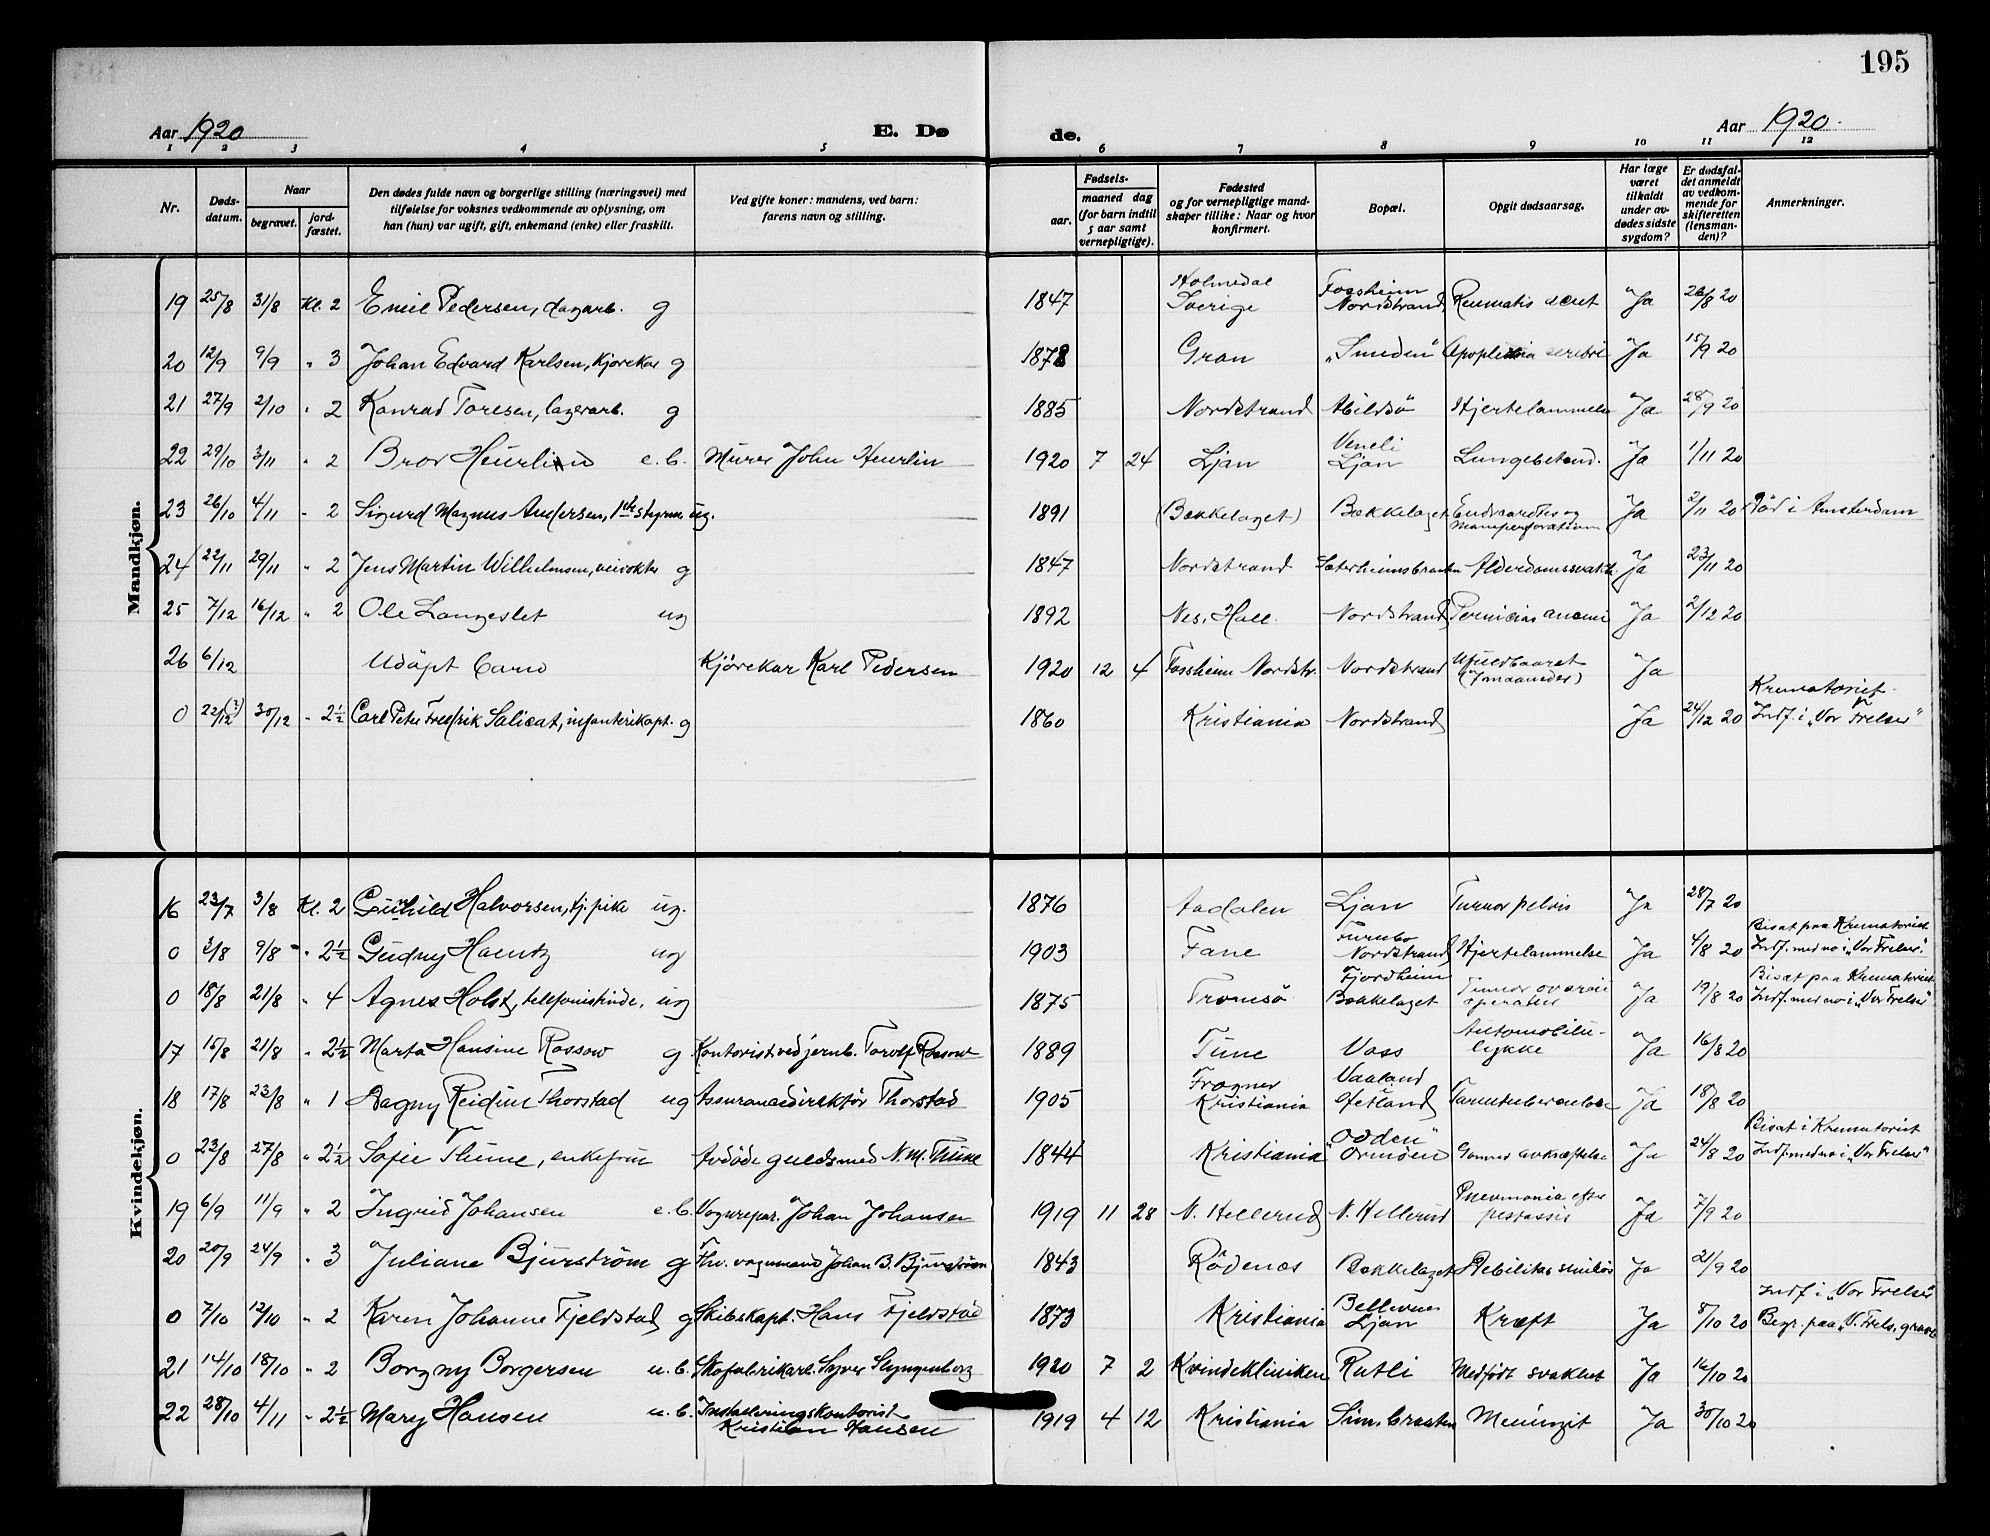 195
Aar 1920
E. Dø
de.
Aar 1920.
1 2 3 4 5 6 7 8 9 10 11 12
Nr.
Døds-datum.
Naar
begravet.
jord-fæstet.
Den dødes fulde navn og borgerlige stilling (næringsvei) med
tilføielse for voksnes vedkommende av oplysning, om
han (hun) var ugift, gift, enkemand (enke) eller fraskilt.
Ved gifte koner: mandens, ved barn:
farens navn og stilling.
Fødsels-
aar.
maaned dag
(for barn indtil
5 aar samt
vernepligtige).
Fødested
og for vernepligtige mand-
skaper tillike: Naar og hvor
konfirmert.
Bopæl.
Opgit dødsaarsag.
Har læge
været
tilkaldt
under av-
dødes sidste
sygdom?
Er dødsfal-
det anmeldt
av vedkom-
mende for
skifteretten
(lensman-
den)?
Anmerkninger.
Mandkjøn.
19 25/8 31/8 Kl. 2 Emil Pedersen, dagarb. g 1847 Holmedal Sverige Fossheim Nordstrand Ja 26/8 20
20 12/9 9/9 " 3 Johan Edvard Karlsen, kjørekar g 1878 Gran Apoplexia cerebri Ja 15/9 20
21 27/9 2/10 " 2 Konrad Toresen, lagerarb. g 1885 Nordstrand Abildsö Hjertelammelse Ja 28/9 20
22 29/10 3/11 " 2 Bror Heurlin e.b. Murer John Heurlin 1920 7 24 Ljan Veneli Ljan Lungebetend. Ja 1/11 20
23 26/10 4/11 " 2 Sigurd Magnus Andersen, 1ste styrm. ug. 1891 (Bækkelaget) Bækkelaget Ja 2/11 20 Död i Amsterdam
24 22/11 29/11 " 2 Jens Martin Wilhelmsen, veivokter g 1847 Nordstrand Ja 23/11 20
25 7/12 16/12 " 2 Ole Langeslet ug 1892 Nes, Hall. Nordstrand Perniciøs anæmi Ja 2/12 20
26 6/12 Udöpt barn Kjörekar Karl Pedersen 1920 12 4 Fossheim Nordstr. Nordstrand Ufuldbaaret (7 maaneder) Ja
0 22/12 (?) 30/12 " 2½ Carl Peter Fredrik Salicat, infanterikapt. g 1860 Kristiania Nordstrand Ja 24/12 20 Krematoriet Indf. i "Vor Frelser"
Kvindekjøn.
16 23/7 3/8 Kl. 2 Gunhild Halvorsen, tj.pike ug. 1876 Aadalen Ljan Tumor pelvis Ja 28/7 20
0 3/8 9/8 " 2½ Gudny Haentz ug 1903 Fane Furubo Nordstrand Hjertelammelse Ja 4/8 20 Bisat paa Krematoriet Indf. med no i "Vor Frelser".
0 18/8 21/8 " 4 Agnes Holst, telefonistinde, ug 1875 Tromsö Fjordheim Bækkelaget Tumor ovarii operatus Ja 19/8 20 Bisat paa Krematoriet Indf. med no i "Vor Frelser"
17 15/8 21/8 " 2½ Marta Hansine Rossow g Kontorist ved jernb. Torolf Rossow 1889 Tune Voss Automobilulykke Ja 16/8 20
18 17/8 23/8 " 1 Dagny Reidun Thorstad ug Assurancedirektör Thorstad 1905 Frogner Kristiania Vaaland Tarmtuberculose Ja 18/8 20
0 23/8 27/8 " 2½ Sofie Thune, enkefrue Avdöde guldsmed N.M. Thune 1844 Kristiania "Odden" Ormöen Ja 24/8 20 Bisat i Krematoriet Indf. med no i "Vor Frelser"
19 6/9 11/9 " 2 Ingrid Johansen e.b. Vognrepar. Johan Johansen 1919 11 28 N. Hellerud N. Hellerud Pneumonia efter pertussis Ja 7/9 20
20 20/9 24/9 " 3 Juliane Bjurström g Fhv. vognmand Johan B. Bjurström 1843 Rödenæs Bækkelaget Debilitas senilis Ja 21/9 20
0 7/10 12/10 " 2 Karen Johanne Fjeldstad g Skibskapt. Hans Fjeldstad 1873 Kristiania Bellevue Ljan Kræft Ja 8/10 20 Indf i "Vor Frelser" Begr. paa "V. Frels. gravl.
21 14/10 18/10 " 2 Borgny Borgersen u.b. Skofabrikarb. Syver Slyngenborg 1920 7 2 Kvindekliniken Rutli Medfödt svakhet Ja 16/10 20
22 28/10 4/11 " 2½ Mary Hansen u.b. Installeringskontorist Kristian Hansen 1919 4 12 Kristiania Sim. braaten Meningit Ja 30/10 20